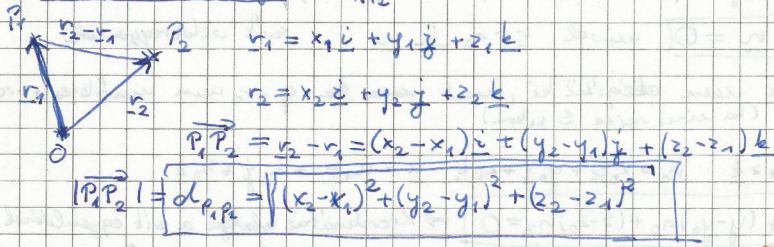 P₁ r₂-r₁ P₂ r₁ = x₁i + y₁j + z₁k
r₁ r₂ r₂ = x₂i + y₂j + z₂k
O P₁P₂ = r₂-r₁ = (x₂-x₁)i + (y₂-y₁)j + (z₂-z₁)k
|P₁P₂| = d_P₁P₂ = √(x₂-x₁)²+(y₂-y₁)²+(z₂-z₁)²